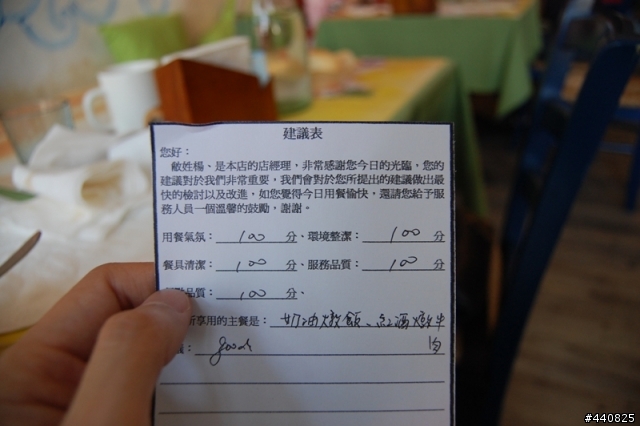 建議表
您好：
敝姓楊、是本店的店經理，非常感謝您今日的光臨，您的
建議對於我們非常重要，我們會對於您所提出的建議做出最
快的檢討以及改進，如您覺得今日用餐愉快，還請您給予服
務人員一個溫馨的鼓勵，謝謝。
用餐氣氛：100分、環境整潔：100分
餐具清潔：100分、服務品質：100分
品質：100分、
所享用的主餐是：奶油燉飯、紅酒燉牛肉
：good
#440825